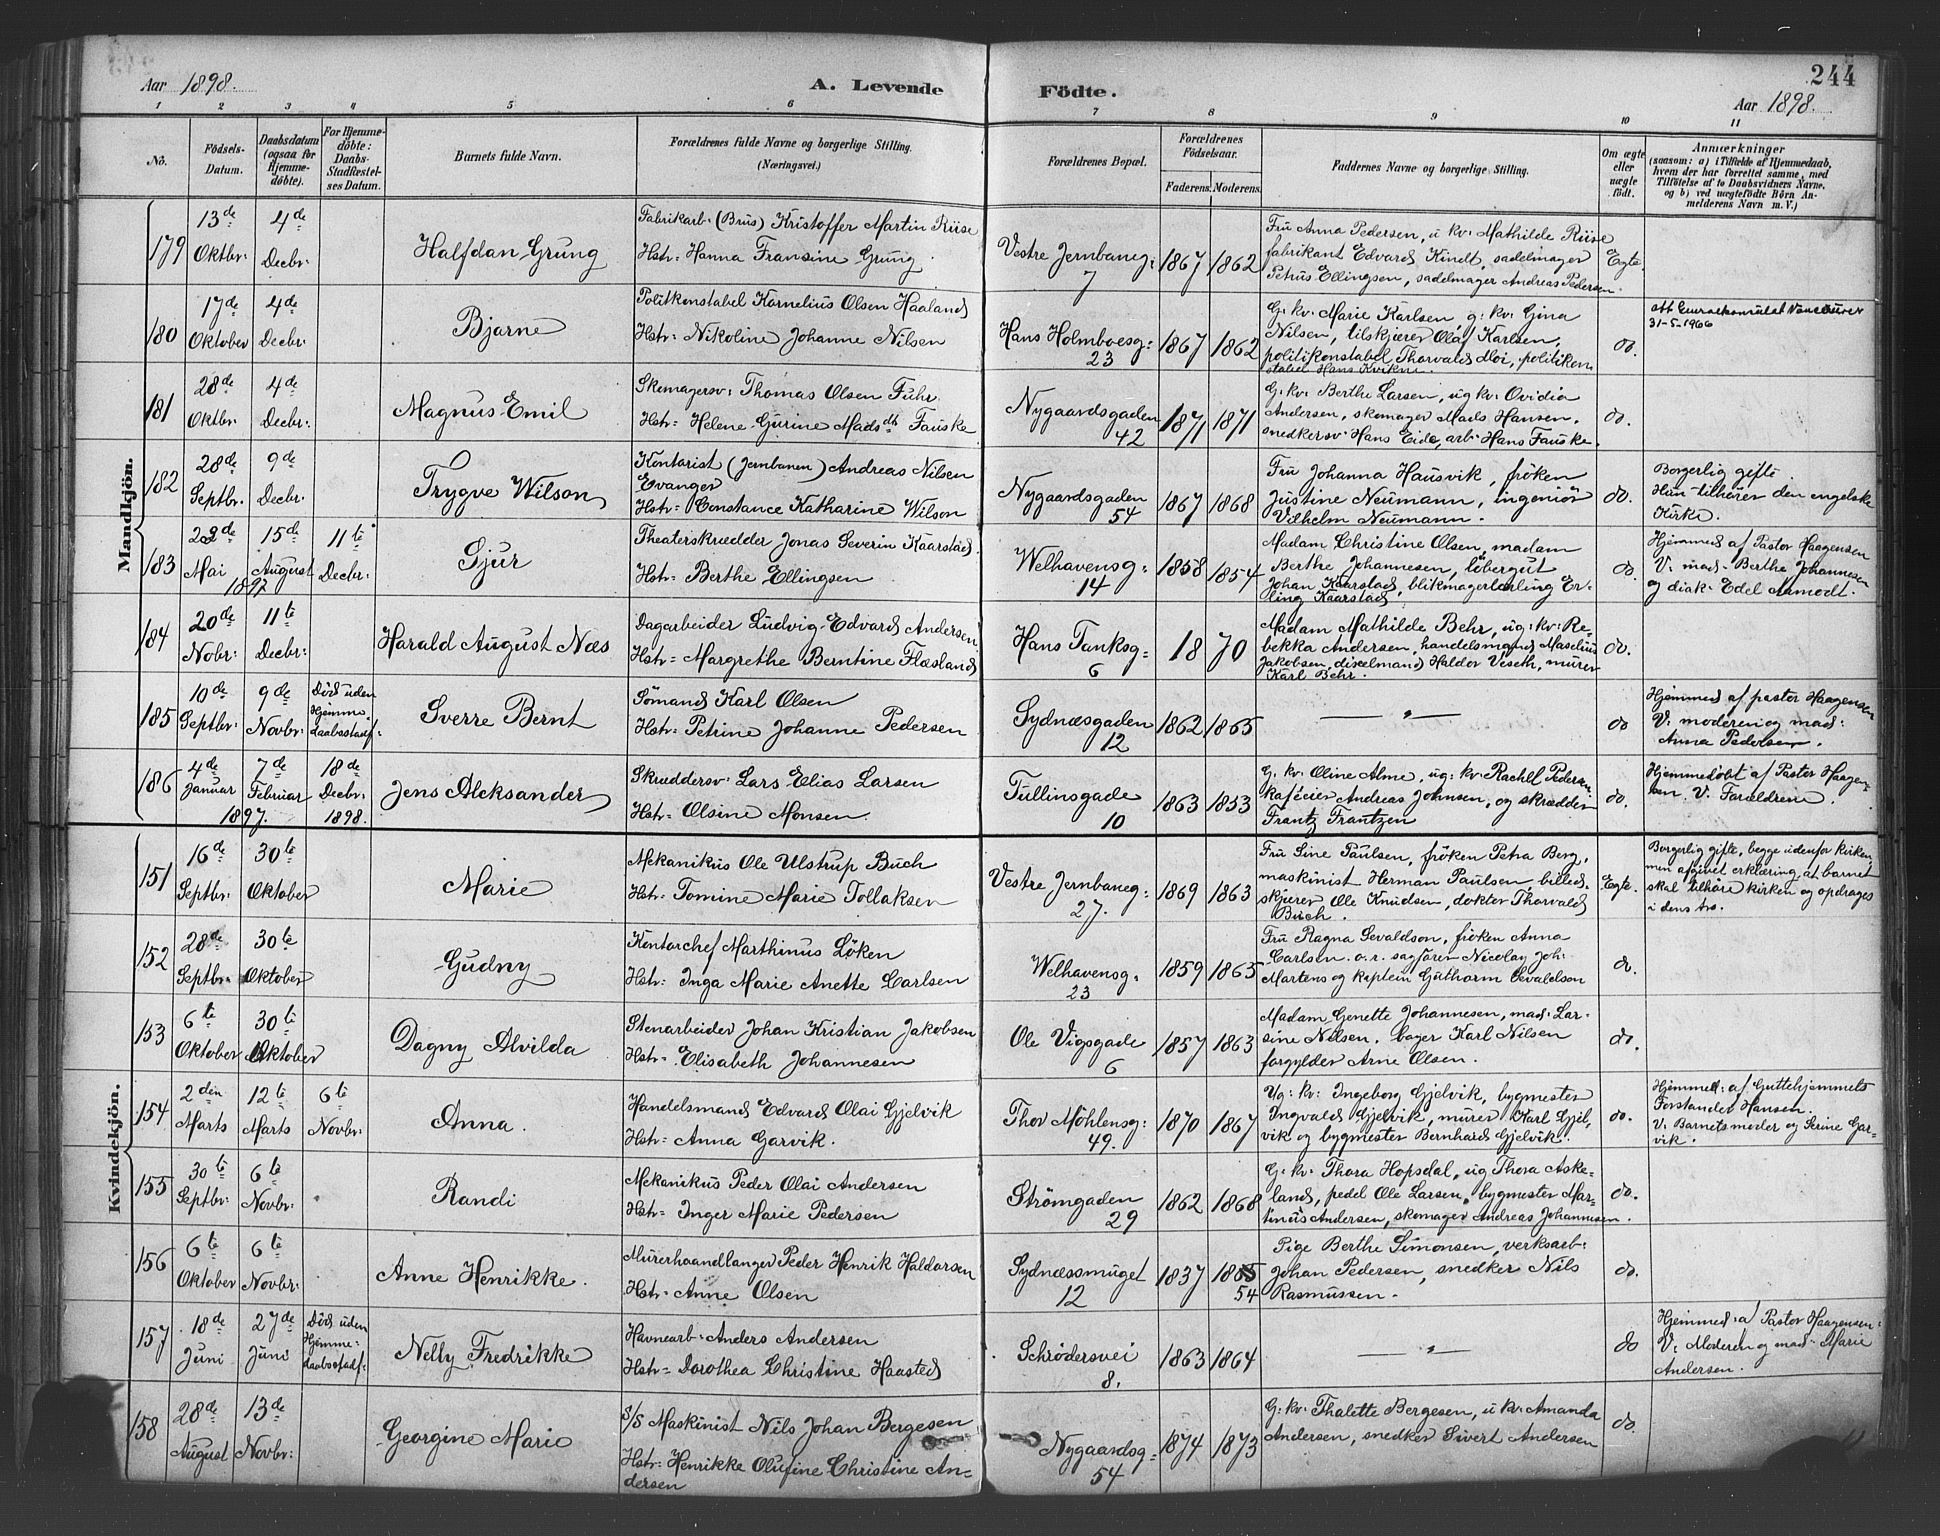 Aar 1898.
A. Levende
Födte.
244
Aar 1898.
1 2 3 4 5 6 7 8 9 10 11
No.
Födsels-Datum.
Daabsdatum (ogsaa for Hjemme-döbte).
For Hjemme-döbte: Daabs-Stadfæstel-ses Datum.
Barnets fulde Navn.
Forældrenes fulde Navne og borgerlige Stilling.
(Næringsvei.)
Forældrenes Bopæl.
Forældrenes Födselsaar.
Faderens. Moderens.
Faddernes Navne og borgerlige Stilling.
Om ægte eller uægte födt.
Anmærkninger
(saasom: a) i Tilfælde af Hjemmedaab, hvem der har forrettet samme, med Tilföielse af to Daabsvidners Navne, og b) ved uægtefödte Börn An-melderens Navn m. V.)
Mandkjön.
179 13de Oktbr: 4de Decbr:
Halfdan Grung
Fabrikarb: (Brus) Kristoffer Martin Riise
Hstr: Hanna Fransine Grung
Vestre Jernbaneg: 7
1867 1862
Fru Anna Pedersen, u kv: Mathilde Riise
fabrikant Edvard Kindt, sadelmager
Petrus Ellingsen, sadelmager Andreas Pedersen.
Egte.
180 17de Oktober 4de Decbr:
Bjarne
Politkonstabel Kornelius Olsen Haaland
Hstr: Nikoline Johanne Nilsen
Hans Holmboesg: 23
1867 1862
G: kv: Marie Karlsen g: kv: Gina
Nilsen, tilskjærer Olaf Karlsen,
politikonstabel Thorvald Moi, politikon
stabel Hans Kvikne.
do.
att Generalkonsulat Vancouver
31-5-1966
181 28de Oktbr: 4de Decbr:
Magnus Emil
Skomagersv: Thomas Olsen Fuhr
Hstr: Helene Gurine Madsdtr Fauske
Nygaardsgaden 42
1871 1871
G: kv: Berthe Larsen, ug kv: Ovidia
Andersen, skomager Mads Hansen,
snedkersv: Hans Eide, arb: Hans Fauske.
do.
182 28de Septbr: 9de Decbr:
Trygve Wilson
Kontorist (Jernbanen) Andreas Nilsen
Evanger
Hstr: Constance Katharine Wilson
Nygaardsgaden 54
1867 1868
Fru Johanna Hausvik, fröken
Justine Neumann, ingeniör
Vilhelm Neumann.
do.
Borgerlig gifte.
Hun tilhörer den engelske
Kirke.
183 23de Mai 15de August 1897 11te Decbr:
Gjur
Theaterskrædder Jonas Severin Kaarstad.
Hstr: Berthe Ellingsen
Welhavensg: 14
1858 1854
Madam Christine Olsen, madam
Berthe Johannesen, löbergut
Johan Kaarstad, blikmagerlærling Er-
ling Kaarstad
do.
Hjemmed af Pastor Haagensen
V: mad. Berthe Johannesen
og diak. Edel Aamodt.
184 20de Nobr: 11te Decbr:
Harald August Næs
Dagarbeider Ludvig Edvard Andersen
Hstr: Margrethe Berntine Flæsland
Hans Tanksg: 6
18 70
Madam Mathilde Behr, ug: kv: Re-
bekka Andersen, handelsmand Maselius
Jakobsen, dixelmand Haldor Veseth, murer
Karl Behr.
do.
185 10de Septbr: 9de Novbr:
Död uden Hjemme-daabsstadf:
Sverre Bernt
Sömand Karl Olsen
Hstr: Petrine Johanne Pedersen
Sydnæsgaden 12
1862 1865
— „ —
do
Hjemmed af pastor Haagensen
V: moderen og mad:
Anna Pedersen.
186 4de Januar 7de Februar 1897. 18de Decbr: 1898.
Jens Aleksander
Skræddersv: Lars Elias Larsen
Hstr: Olsine Monsen.
Tullinsgade 10
1863 1853
G: kv: Oline Alme, ug: kv: Rachel Pedersen,
kaféeier Andreas Johnsen, og skrædder
Frantz Frantzen
do.
Hjemmedöbt af Pastor Haagen-
sen. V. Forældrene.
Kvindekjön.
151 16de Septbr: 30te Oktober
Marie
Mekanikus Ole Ulstrup Buch
Hstr: Tomine Marie Tollaksen
Vestre Jernbaneg: 27.
1869 1863
Fru Sine Paulsen, fröken Petra Berg,
maskinist Herman Paulsen, billed-
skjærer Ole Knudsen, doktor Thorvald
Buch.
Egte.
Borgerlig gifte, begge udenfor kirken,
men afgivet erklæring at barnet
skal tilhöre kirken og opdrages
i dens tro.
152 28de Septbr: 30te Oktober
Gudny
Kontorchef Marthinus Löken
Hstr: Inga Marie Anette Carlsen
Welhavensg: 23
1859 1865
Fru Ragna Sevaldson, fröken Anna
Carlsen. o.r. sagförer Nicolay Joh:
Martens og kaptein Guthorm Sevaldson
do.
153 6te Oktober 30te Oktober
Dagny Alvilda
Stenarbeider Johan Kristian Jakobsen
Hstr: Elisabeth Johannesen
Ole Vigsgade 6
1857 1863
Madam Genette Johannesen, mad: Lar-
sine Nilsen, bager Karl Nilsen
forgylder Arne Olsen.
do.
154 2den Marts 12te Marts 6te Novbr:
Anna.
Handelsmand Edvard Olai Gjelvik
Hstr: Anna Garvik.
Thor Möhlensg: 49.
1870 1867
Ug: kv: Ingeborg Gjelvik, bygmester
Ingvald Gjelvik, murer Karl Gjel,
vik og bygmester Bernhard Gjelvik.
do.
Hjemmed: af Guttehjemmets
Forstander Hansen.
V: Barnets moder og Serine Gar-
vik.
155 30te Septbr: 6te Novbr:
Randi
Mekanikus Peder Olai Andersen
Hstr: Inger Marie Pedersen
Strömgaden 29
1862 1868
G: kv: Thora Hopsdal, ug Thora Aske-
land, pedel Ole Larsen, bygmester Mar-
tinus Andersen, skomager Andreas Johannesen.
do.
156 6te Oktober 6te Novbr:
Anne Henrikke.
Murerhaandlanger Peder Henrik Haldorsen
Hstr: Anne Olsen
Sydnæssmuget 12
1837 1865 54
Pige Berthe Simonsen, verksarb:
Johan Pedersen, snedker Nils
Rasmussen.
do.
157 18de Juni 27de Juni
Död uden Hjemme-daabsstadf:
Nelly Fredrikke
Havnearb: Anders Andersen
Hstr: Dorothea Christine Haasted
Schrödersvei 8.
1863 1864
— „ —
do
Hjemmed: a/ Pastor Haagensen:
V: Moderen og mad: Marie
Andersen.
158 28de August 13de Novbr:
Georgine Marie
S/S Maskinist Nils Johan Bergesen
Hstr: Henrikke Olufine Christine An-
dersen
Nygaardsg: 54
1874 1873
G: kv: Thalette Bergesen, u kv: Amanda
Andersen, snedker Sivert Andersen
do.